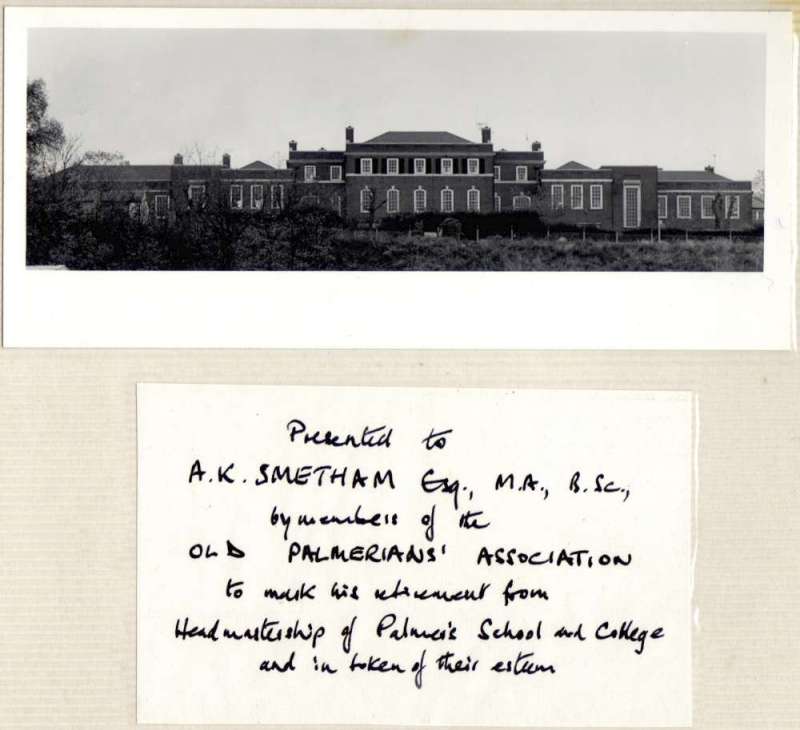 Presented to
A.K. SMETHAM Esq., M.A., B.Sc.,
by members of the
OLD PALMERIANS' ASSOCIATION
to mark his retirement from
Headmastership of Palmer's School and College
and in token of their esteem